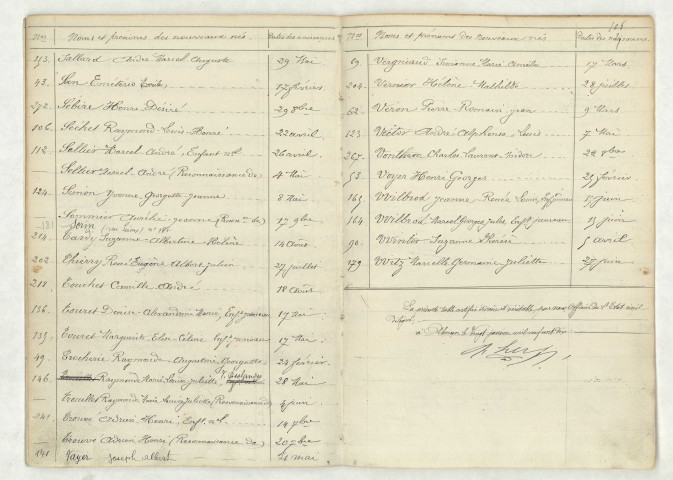 Nos Noms et prénoms des nouveaux nés Dates des naissances
153. Sallard André Marcel Auguste 29 Mai
43. San Emétério 17 février
272 Sébire Henri Désiré 29 8bre
106. Séchet Raymond Louis Honoré 22 avril
112 Sellier Marcel André, Enfant nel 26 avril
— Sellier Marcel André (Reconnaissance de) 4 Mai
124 Simon Yvonne Georgette Jeanne 8 Mai
— Sommier Aurélie Jeanne (Recon. de) 17 9bre
181 n° 181
214. Tardy Suzanne Albertine Hélène 14 Août
202 Thierry René Eugène Albert Julien 27 juillet
218 Touchet Camille André 18 Août
136 Touret Denise Alexandrine Marie, Enft jumeau 17 Mai
135. Touret Marguerite Elise Céline Enft jumeau 17 Mai
49. Trocherie Raymonde Augustine Georgette 24 février
146 Raymonde Marie Louise Juliette 28 Mai
— Raymonde Marie Louise Juliette (Reconnaissance) 4 juin
241 Trouvé Adrien Henri, Enft nel 14 9bre
— Trouvé Adrien Henri (Reconnaissance de) 20 7bre
141 Vayer Joseph Albert 21 mai
125
Nos Noms et prénoms des nouveaux nés Dates des naissances
69. Vergniaud Marie Amélie 17 Mars
204 Hélène Mathilde 28 juillet
62 Véron Pierre Romain Jean 9 Mars
123 André Alphonse Louis 7 Mai
267 Charles Laurent Isidore
53 Voyer Henri Georges 25 février
165 Wilbrod Jeanne Renée Louise Enft jumeau 15 juin
164 Wilbrod Marcel Georges Jules Enft jumeau 15 juin
90 Suzanne Thérèse 5 avril
179 Witz Marcelle Germaine Juliette 25 juin
La présente table certifiée sincère et véritable, par nous Officier de l'Etat civil